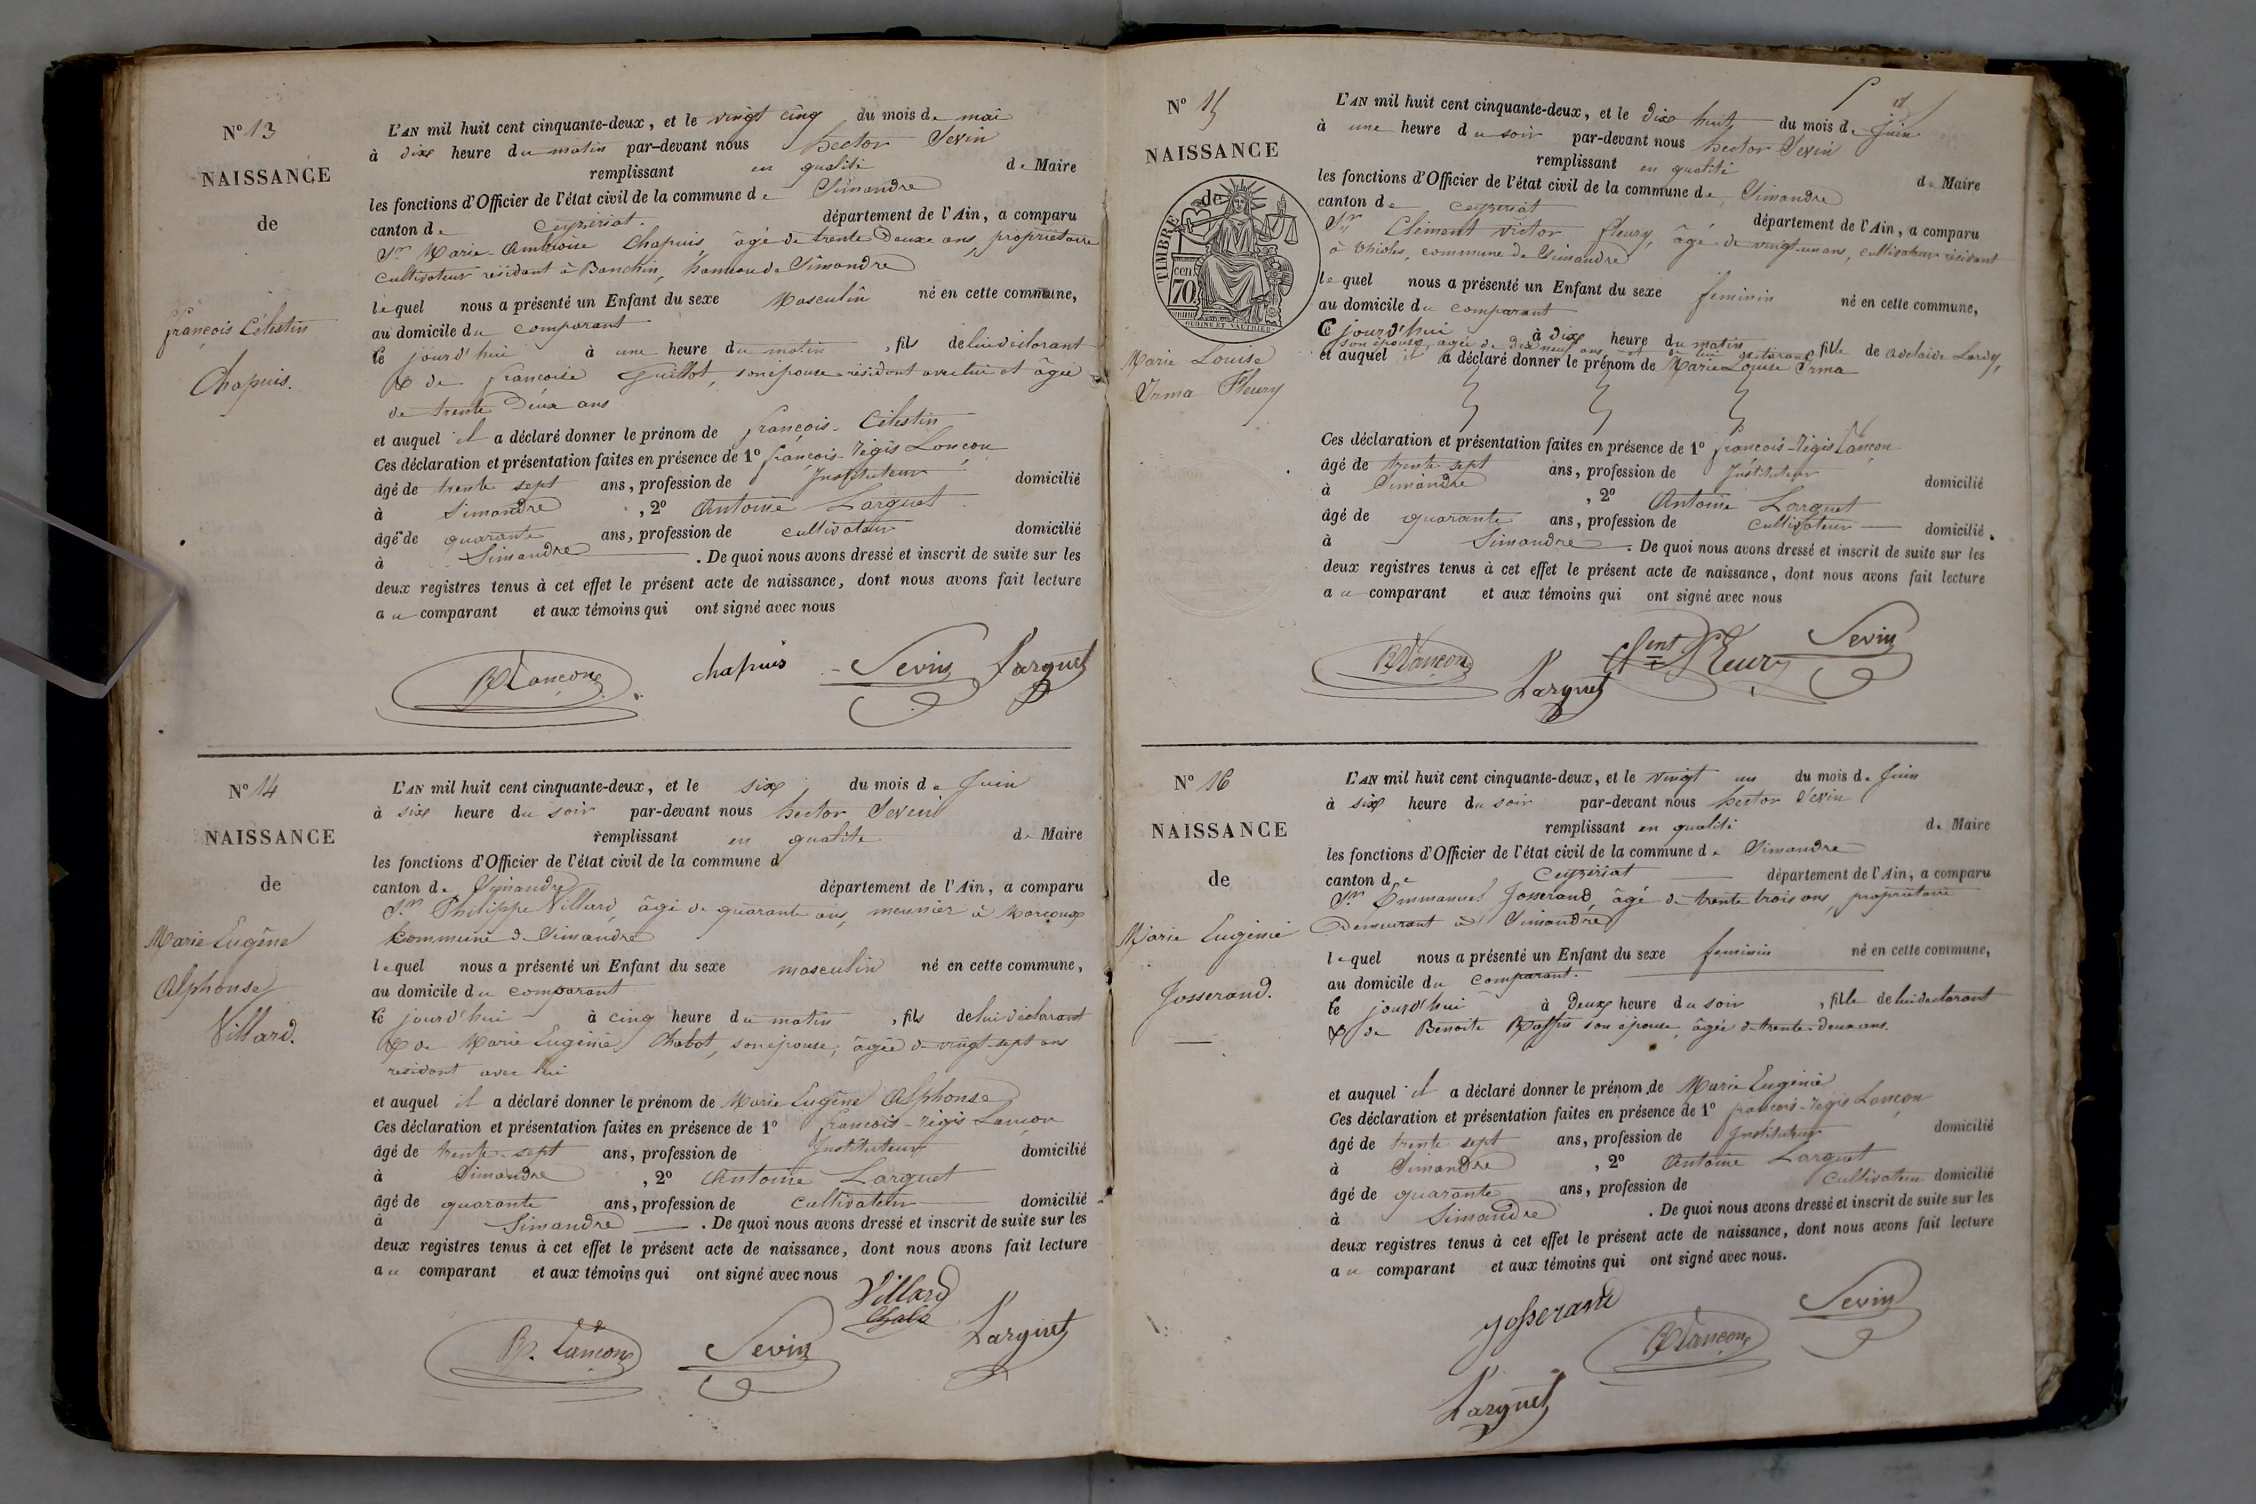 N° 13
NAISSANCE
de
françois Célestin
Chapuis.
L'AN mil huit cent cinquante-deux, et le vingt cinq du mois de mai
à dix heure du matin par-devant nous hector Sevin
remplissant en qualité de Maire
les fonctions d'Officier de l'état civil de la commune de Simandre
canton de ceyzeriat. département de l'Ain, a comparu
Sr Marie-Ambroise Chapuis, âgé de trente Deux ans, propriétaire
cultivateur résidant à Banchin, hameau de Simandre
lequel nous a présenté un Enfant du sexe Masculin né en cette commune,
au domicile du comparant
Ce jourd'hui à une heure du matin, fils de lui déclarant
& de françoise Guillot, son épouse résidant avec lui et âgée
de trente Deux ans
et auquel il a déclaré donner le prénom de françois-Célestin
Ces déclaration et présentation faites en présence de 1° françois-Régis Lançon
âgé de trente sept ans, profession de Instituteur domicilié
à Simandre, 2° Antoine Larguet
âgé de quarante ans, profession de cultivateur domicilié
à Simandre. De quoi nous avons dressé et inscrit de suite sur les
deux registres tenus à cet effet le présent acte de naissance, dont nous avons fait lecture
au comparant et aux témoins qui ont signé avec nous
RLançon chapuis Sevin Larguet
N° 14
NAISSANCE
de
Marie Eugène
Alphonse
Villard.
L'AN mil huit cent cinquante-deux, et le six du mois de Juin
à six heure du soir par-devant nous hector Sevin
remplissant en qualité de Maire
les fonctions d'Officier de l'état civil de la commune d
canton de Simandre département de l'Ain, a comparu
Sr Philippe Villard, âgé de quarante ans, meunier à Marcoux
Commune de Simandre
lequel nous a présenté un Enfant du sexe masculin né en cette commune,
au domicile du comparant
Ce jourd'hui à cinq heure du matin, fils de lui déclarant
& de Marie Eugénie Chabot, son épouse, âgée de vingt sept ans
résidant avec lui
et auquel il a déclaré donner le prénom de Marie Eugène Alphonse
Ces déclaration et présentation faites en présence de 1° francois-régis Lançon
âgé de trente-sept ans, profession de Instituteur domicilié
à Simandre, 2° Antoine Larguet
âgé de quarante ans, profession de cultivateur domicilié
à Simandre. De quoi nous avons dressé et inscrit de suite sur les
deux registres tenus à cet effet le présent acte de naissance, dont nous avons fait lecture
au comparant et aux témoins qui ont signé avec nous
Villard
R. Lançon Sevin Larguet
N° 15
NAISSANCE
de
TIMBRE
70 cen
Marie Louise
Irma Fleury
L'AN mil huit cent cinquante-deux, et le dix huit du mois de Juin
à une heure du soir par-devant nous hector Sevin
remplissant en qualité de Maire
les fonctions d'Officier de l'état civil de la commune de Simandre
canton de ceyzeriat département de l'Ain, a comparu
Sr Clément Victor fleury, âgé de vingt un ans, cultivateur résidant
à Thioles, commune de Simandre
lequel nous a présenté un Enfant du sexe feminin né en cette commune,
au domicile du comparant
Ce jourd'hui à dix heure du matin, fille de Adelaïde Lardy,
son épouse, agée de dix neuf ans et de lui déclarant
et auquel il a déclaré donner le prénom de Marie Louise Irma
Ces déclaration et présentation faites en présence de 1° francois-régis Lançon
âgé de trente sept ans, profession de Instituteur domicilié
à Simandre, 2° Antoine Larguet
âgé de quarante ans, profession de cultivateur domicilié
à Simandre. De quoi nous avons dressé et inscrit de suite sur les
deux registres tenus à cet effet le présent acte de naissance, dont nous avons fait lecture
au comparant et aux témoins qui ont signé avec nous
RLançon Larguet Clent Fleury Sevin
N° 16
NAISSANCE
de
Marie Eugénie
Josserand.
L'AN mil huit cent cinquante-deux, et le vingt un du mois de Juin
à six heure du soir par-devant nous hector Sevin
remplissant en qualité de Maire
les fonctions d'Officier de l'état civil de la commune de Simandre
canton de Ceyzeriat département de l'Ain, a comparu
Sr Emmanuel Josserand, âgé de trente trois ans, propriétaire
Demeurant à Simandre
lequel nous a présenté un Enfant du sexe feminin né en cette commune,
au domicile du comparant.
Ce jourd'hui à Deux heure du soir, fille de lui déclarant
& de Benoite Raffin son épouse, âgée de trente-deux ans.
et auquel il a déclaré donner le prénom de Marie Eugénie
Ces déclaration et présentation faites en présence de 1° francois-régis Lançon
âgé de trente sept ans, profession de Instituteur domicilié
à Simandre, 2° Antoine Larguet
âgé de quarante ans, profession de Cultivateur domicilié
à Simandre. De quoi nous avons dressé et inscrit de suite sur les
deux registres tenus à cet effet le présent acte de naissance, dont nous avons fait lecture
au comparant et aux témoins qui ont signé avec nous.
Josserand RLançon Sevin
Larguet